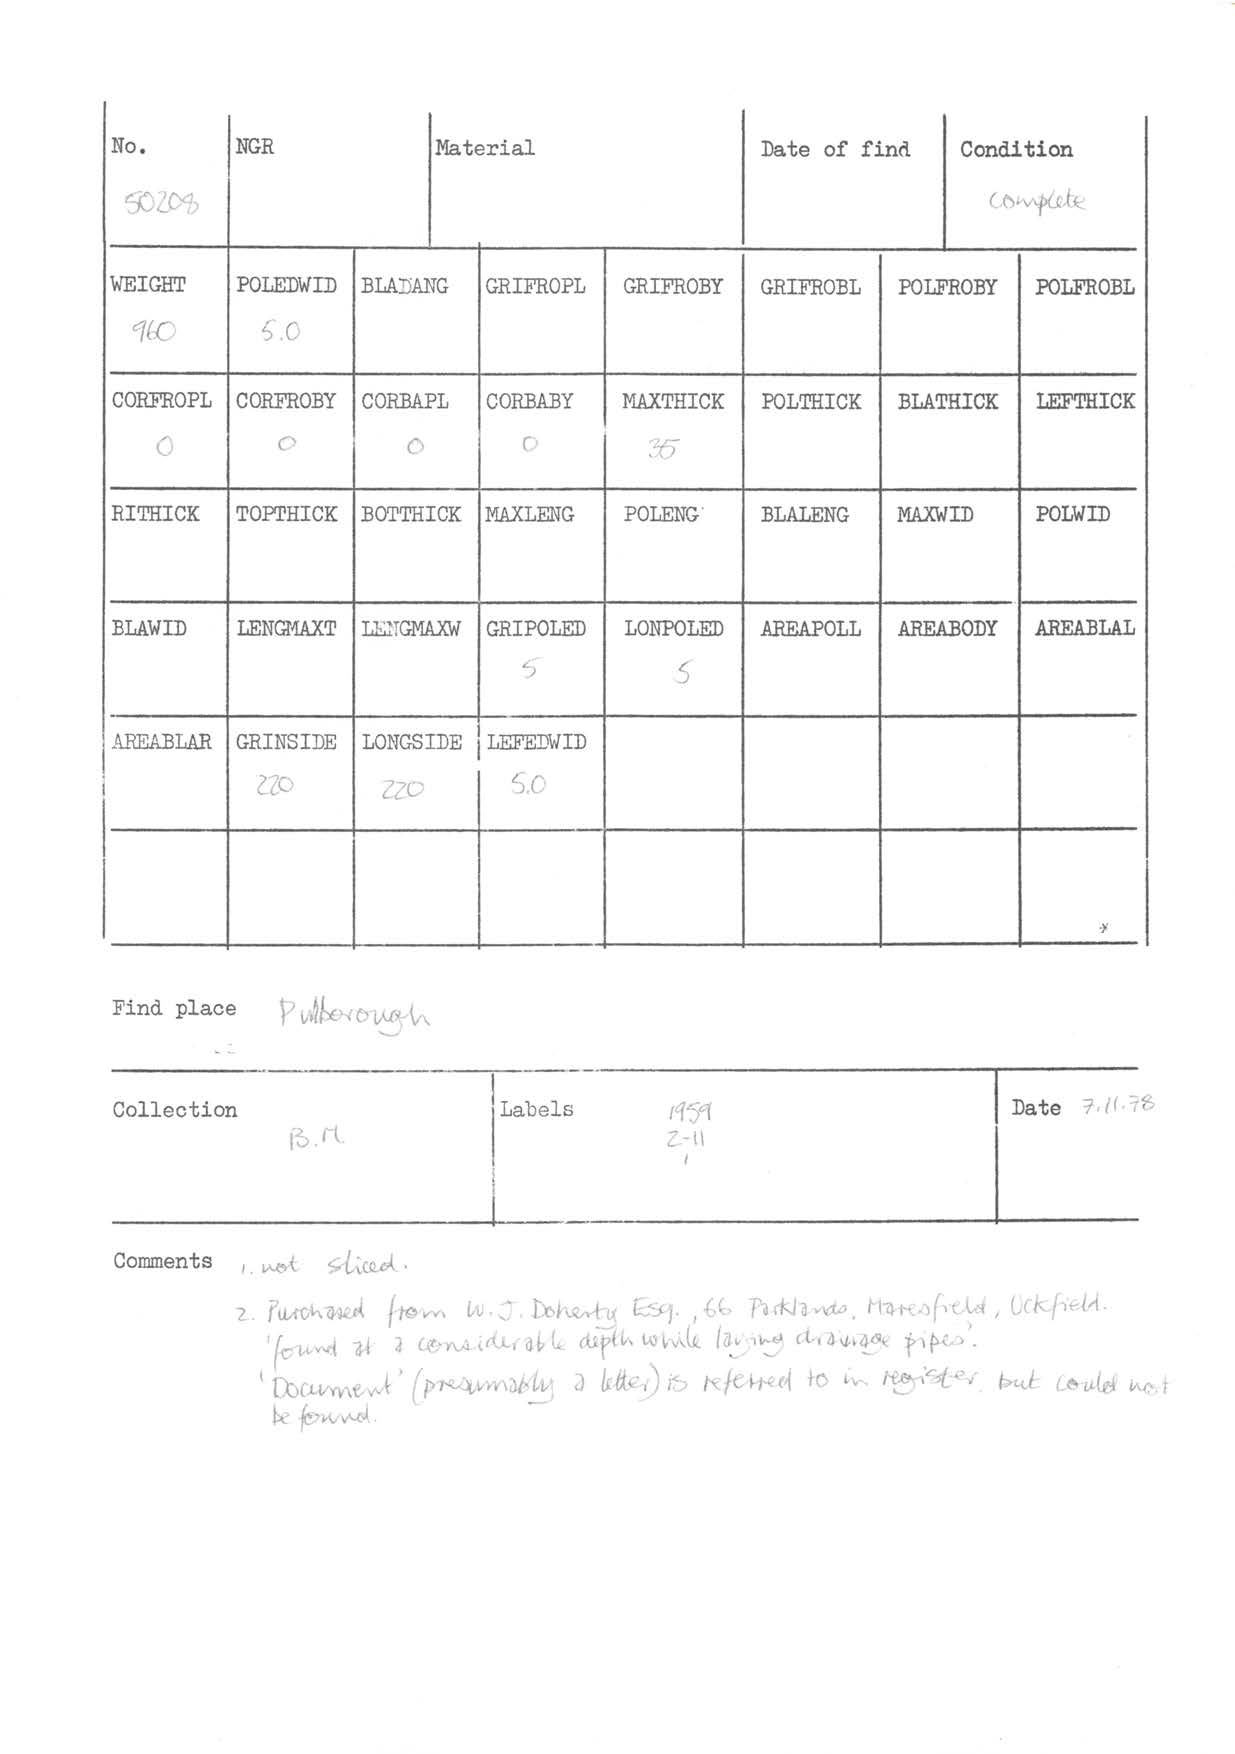 No. NGR Material Date of find Condition
50208 complete
WEIGHT POLEDWID BLADANG GRIFROPL GRIFROBY GRIFROBL POLFROBY POLFROBL
960 5.0
CORFROPL CORFROBY CORBAPL CORBABY MAXTHICK POLTHICK BLATHICK LEFTHICK
0 0 0 0 35
RITHICK TOPTHICK BOTTHICK MAXLENG POLENG BLALENG MAXWID POLWID
BLAWID LENGMAXT LENGMAXW GRIPOLED LONPOLED AREAPOLL AREABODY AREABLAL
5 5
AREABLAR GRINSIDE LONGSIDE LEFEDWID
220 220 5.0
Find place Pulborough
Collection Labels 1959 Date 7.11.78
B.M. 2-11
1
Comments 1. not sliced.
2. Purchased from W.J. Doherty Esq., 66 Parklands, Maresfield, Uckfield.
'found at a considerable depth while laying drainage pipes'.
'Document' (presumably a letter) is referred to in register, but could not
be found.